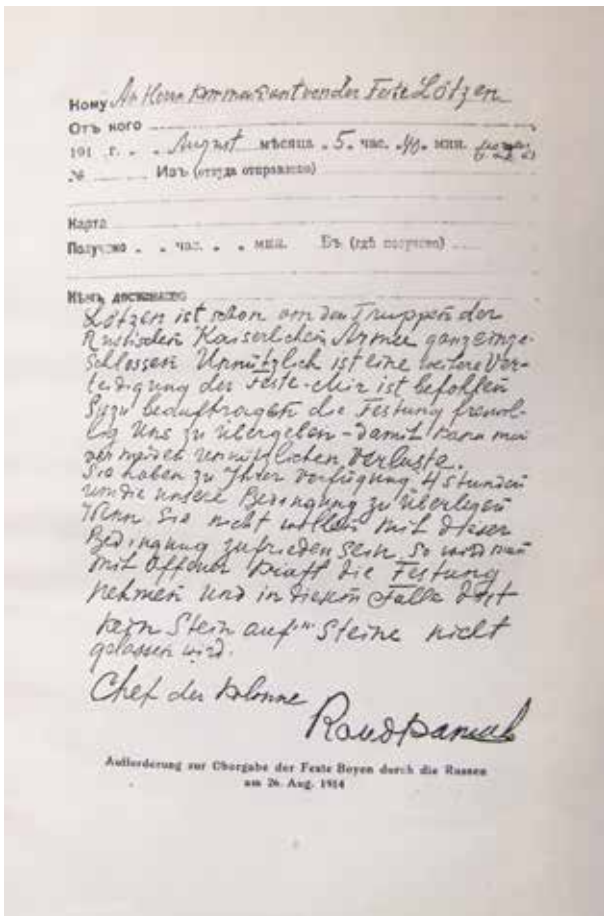 Кому An Herrn Kommandant von der Feste Lötzen
Отъ кого
191 г. August мѣсяца 5. час. 40. мин.
№ Изъ (откуда отправлено)
Карта
Получено час. мин. Въ (гдѣ получено)
Кѣмъ доставлено
Lötzen ist schon von den Truppen der
Russischen Kaiserlichen Armee ganz einge-
schlossen. Unnützlich ist eine weitere Ver-
teidigung der Feste. Mir ist befohlen
Sie zu beauftragen die Festung freiwil-
lig uns zu übergeben - damit kann man
vermeiden unnützlichen Verluste.
Sie haben zu Ihrer Verfügung 4 Stunden
um die unsere Bedingung zu überlegen
Wenn Sie nicht wollen mit dieser
Bedingung zufrieden sein, so wird man
mit offener Kraft die Festung
nehmen und in diesem Falle dort
kein Stein auf Steine nicht
gelassen wird.
Chef der Kolonne
Aufforderung zur Übergabe der Feste Boyen durch die Russen
am 26. Aug. 1914